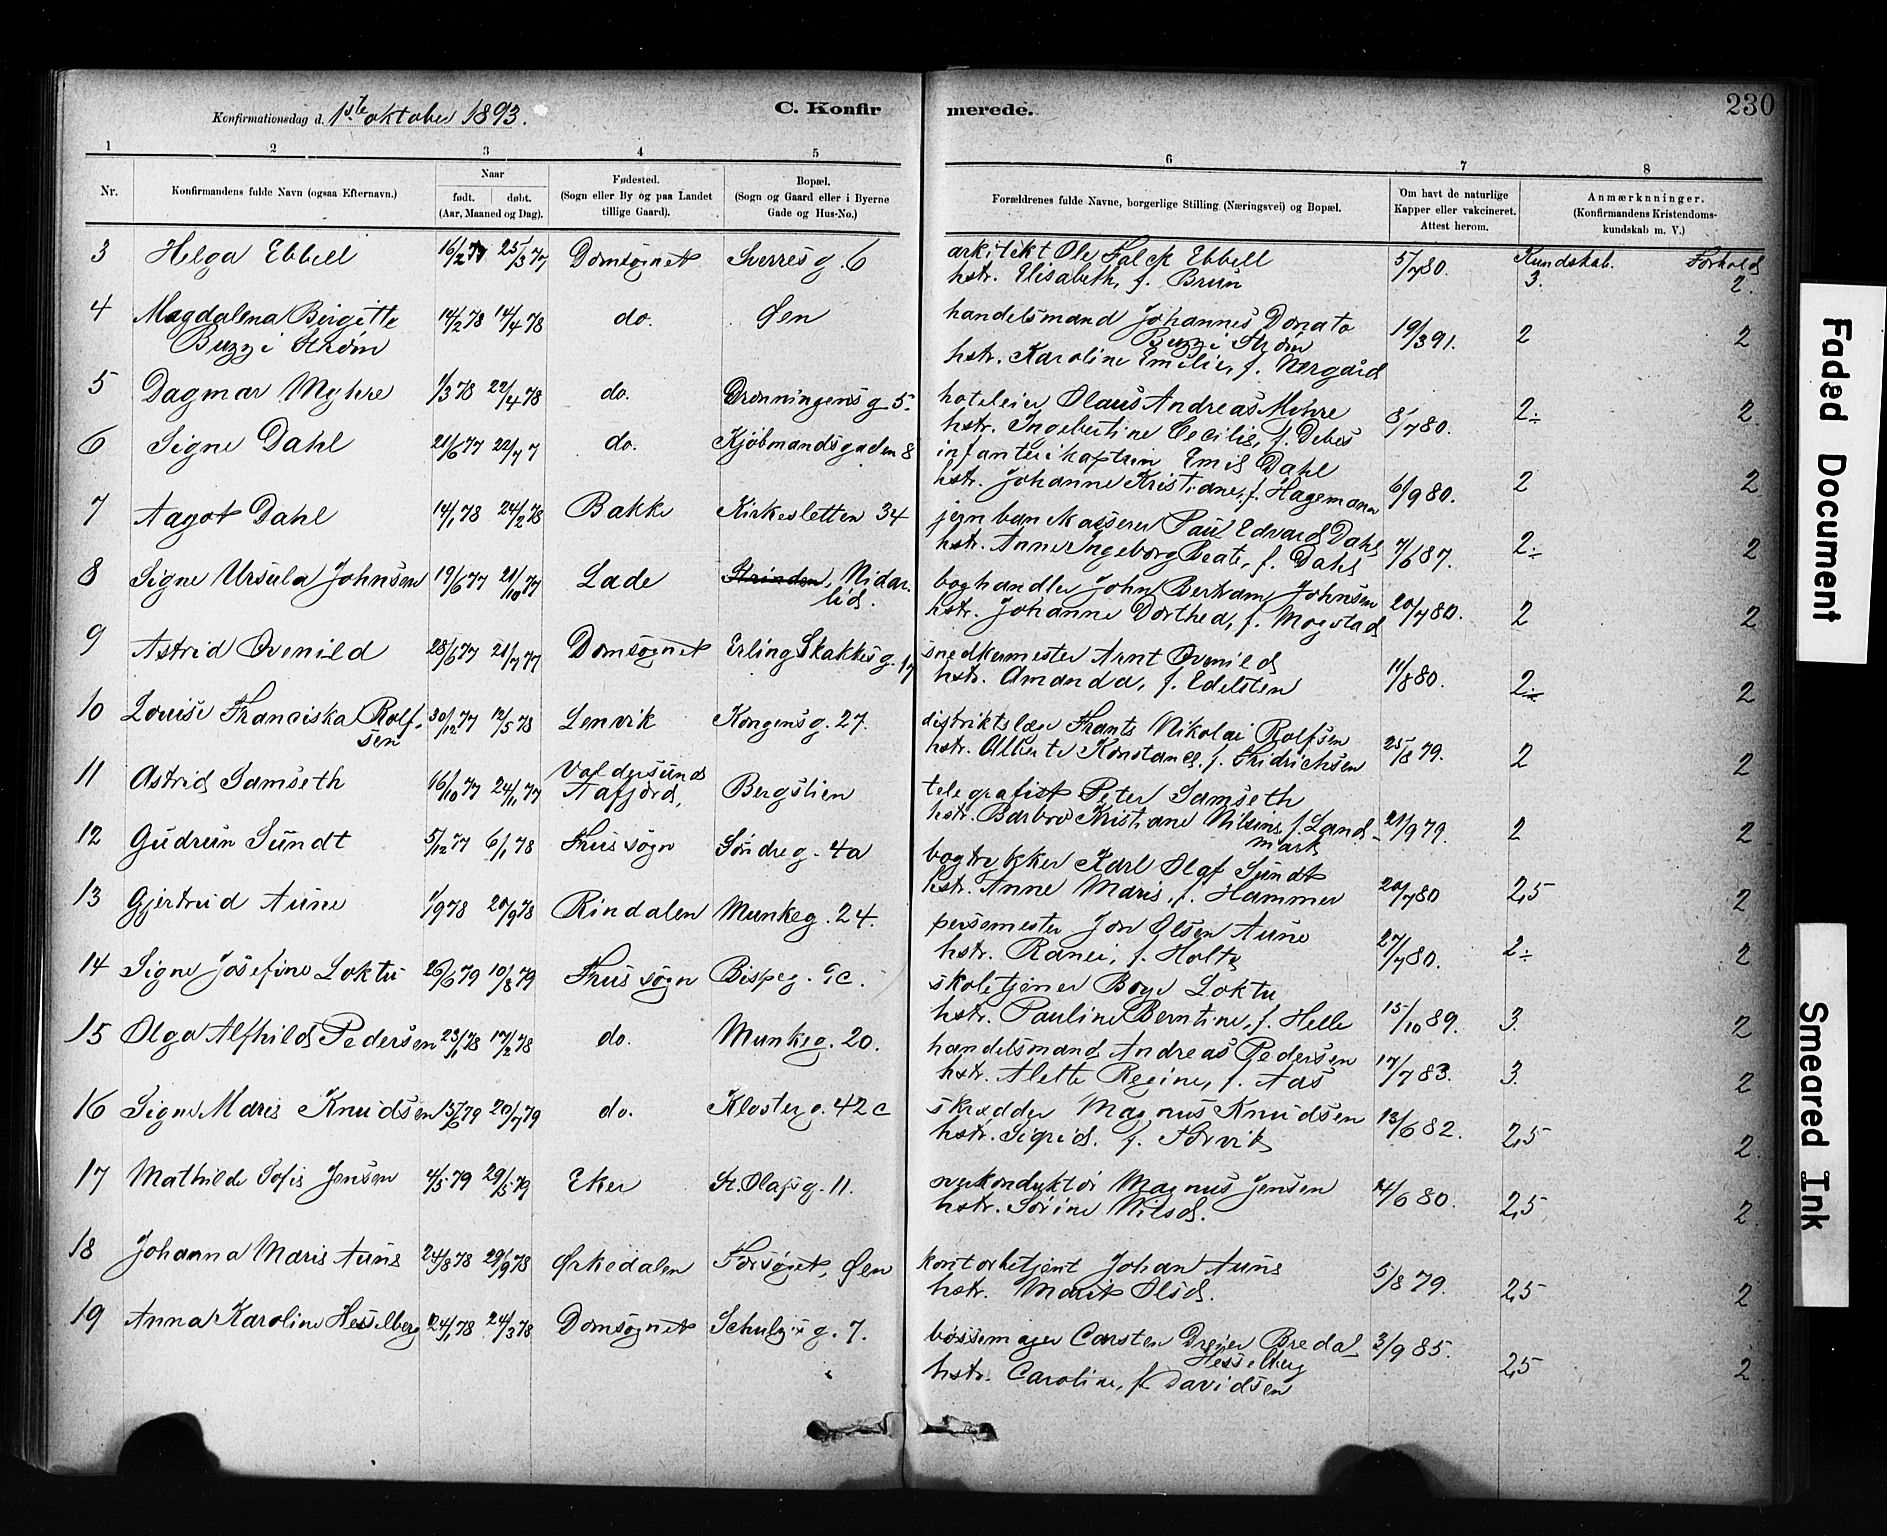 Konfirmationsdag d. 1ste oktober 1893. C. Konfir merede. 230
1 2 3 4 5 6 7 8
Nr. Konfirmandens fulde Navn (ogsaa Efternavn.) Naar født. døbt. (Aar, Maaned og Dag). Fødested. (Sogn eller By og paa Landet tillige Gaard). Bopæl. (Sogn og Gaard eller i Byerne Gade og Hus-No.) Forældrenes fulde Navne, borgerlige Stilling (Næringsvei) og Bopæl. Om havt de naturlige Kapper eller vakcineret. Attest herom. Anmærknninger. (Konfirmandens Kristendoms-kundskab m. V.)
3 Helga Ebbell 16/2 77 25/3 77 Domsognet Sverresg. 6 arkitekt Ole Falck Ebbell 5/7 80. Kundskab. Forhold
hstr. Elisabeth, f. Brun 3. 2.
4 Magdalena Birgitte 14/2 78 14/4 78 do. Øen handelsmand Johannes Donato 19/3 91. 2 2
Buzzi Strøm Buzzi Strøm
hstr. Karoline Emilie, f. Nergård
5 Dagmar Myhre 1/3 78 22/4 78 do. Dronningensg. 5. hoteleier Olaus Andreas Myhre 8/7 80. 2÷ 2
hstr. Ingebertine Cecilie, f. Debes
6 Signe Dahl 21/6 77 22/7 7 do. Kjøbmandsgaden 8 infanterikaptein Emil Dahl
hstr. Johanne Kristiane, f. Hagemann 6/9 80. 2 2
7 Aagot Dahl 14/1 78 24/2 78 Bakke Kirkesletten 34 jernbankasserer Paul Edvard Dahl
hstr. Anne Ingeborg Beate, f. Dahl 7/6 87. 2÷ 2
8 Signe Ursula Johnsen 19/6 77 21/10 77 Lade Strinden, Nidar- boghandler John Bertram Johnsen
lid. hstr. Johanne Dorthea, f. Mogstad 20/7 80. 2 2
9 Astrid Ovenild 28/6 77 21/7 77 Domsognet Erling Skakkesg. 17 snedkermester Arnt Ovenild
hstr. Amanda, f. Edelsten 11/8 80. 2÷ 2
10 Louise Franciska Rolf- 30/12 77 12/5 78 Lenvik Kongensg. 27. distriktslæge Frants Nikolai Rolfsen
sen hstr. Alberte Konstance, f. Fridrichsen 25/8 79. 2 2
11 Astrid Samseth 16/10 77 24/11 77 Valdersund Bergslien telegrafist Peter Samseth
Stafjord, hstr. Barbro Kristiane Nilsine, f. Land- 21/9 79. 2 2
mark
12 Gudrun Sundt 5/12 77 6/1 78 Frue sogn Søndreg. 4a bogtrykker Karl Olaf Sundt
hstr. Anne Marie, f. Hammer 20/7 80 2,5 2
13 Gjertrud Aune 1/9 78 20/9 78 Rindalen Munkeg. 24. persemester Jon Olsen Aune
hstr. Ranei, f. Holte 27/7 80. 2÷ 2
14 Signe Josefine Loktu 26/6 79 10/8 79 Frue sogn Bispeg. 9c. skoletjener Boye Loktu
hstr. Pauline Berntine, f. Helle 15/10 89. 3. 2
15 Olga Alfhild Pedersen 23/1 78 17/2 78 do. Munkeg. 20. handelsmand Andreas Pedersen
hstr. Alette Regine, f. Aas 17/7 83. 3. 2
16 Signe Marie Knudsen 13/6 79 20/7 79 do. Klosterg. 42c skrædder Magnus Knudsen
hstr. Sigrid, f. Torvik 13/6 82. 2,5 2.
17 Mathilde Sofie Jensen 4/5 79 29/5 79 Eker St. Olafsg. 11. overkonduktør Magnus Jensen
hstr. Sørine Nilsd. 14/6 80. 2,5 2.
18 Johanna Marie Aune 24/8 78 29/9 78 Ørkedalen Forsognet, Øen kontorbetjent Johan Aune
hstr. Marit Olsd. 5/8 79. 2,5 2
19 Anna Karoline Hesselberg 24/1 78 24/3 78 Domsognet Schulzesg. 7. bøssemager Carsten Dreier Bredal 3/9 85. 2,5 2
Hesselberg
hstr. Caroline, f. Davidsen
Faded Document
Smeared Ink